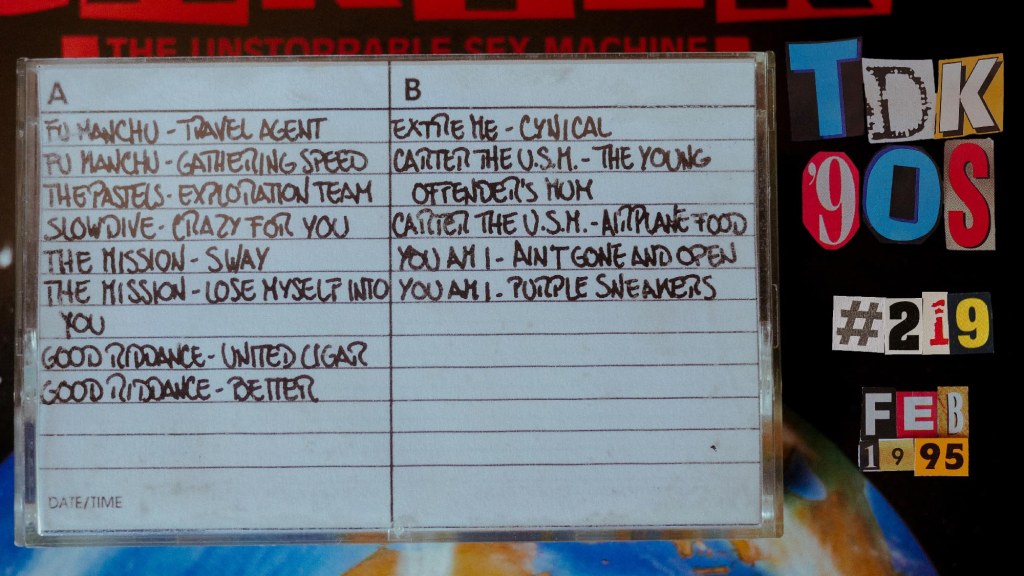 THE UNSTOPPABLE SEX MACHINE
A
FU MANCHU - TRAVEL AGENT
FU MANCHU - GATHERING SPEED
THE PASTELS - EXPLORATION TEAM
SLOWDIVE - CRAZY FOR YOU
THE MISSION - SWAY
THE MISSION - LOSE MYSELF INTO
YOU
GOOD RIDDANCE - UNITED CIGAR
GOOD RIDDANCE - BETTER
DATE/TIME
B
EXTREME - CYNICAL
CARTER THE U.S.M. - THE YOUNG
OFFENDER'S MUM
CARTER THE U.S.M. - AIRPLANE FOOD
YOU AM I - AIN'T GONE AND OPEN
YOU AM I - PURPLE SNEAKERS
TDK
'90S
#219
FEB
1995